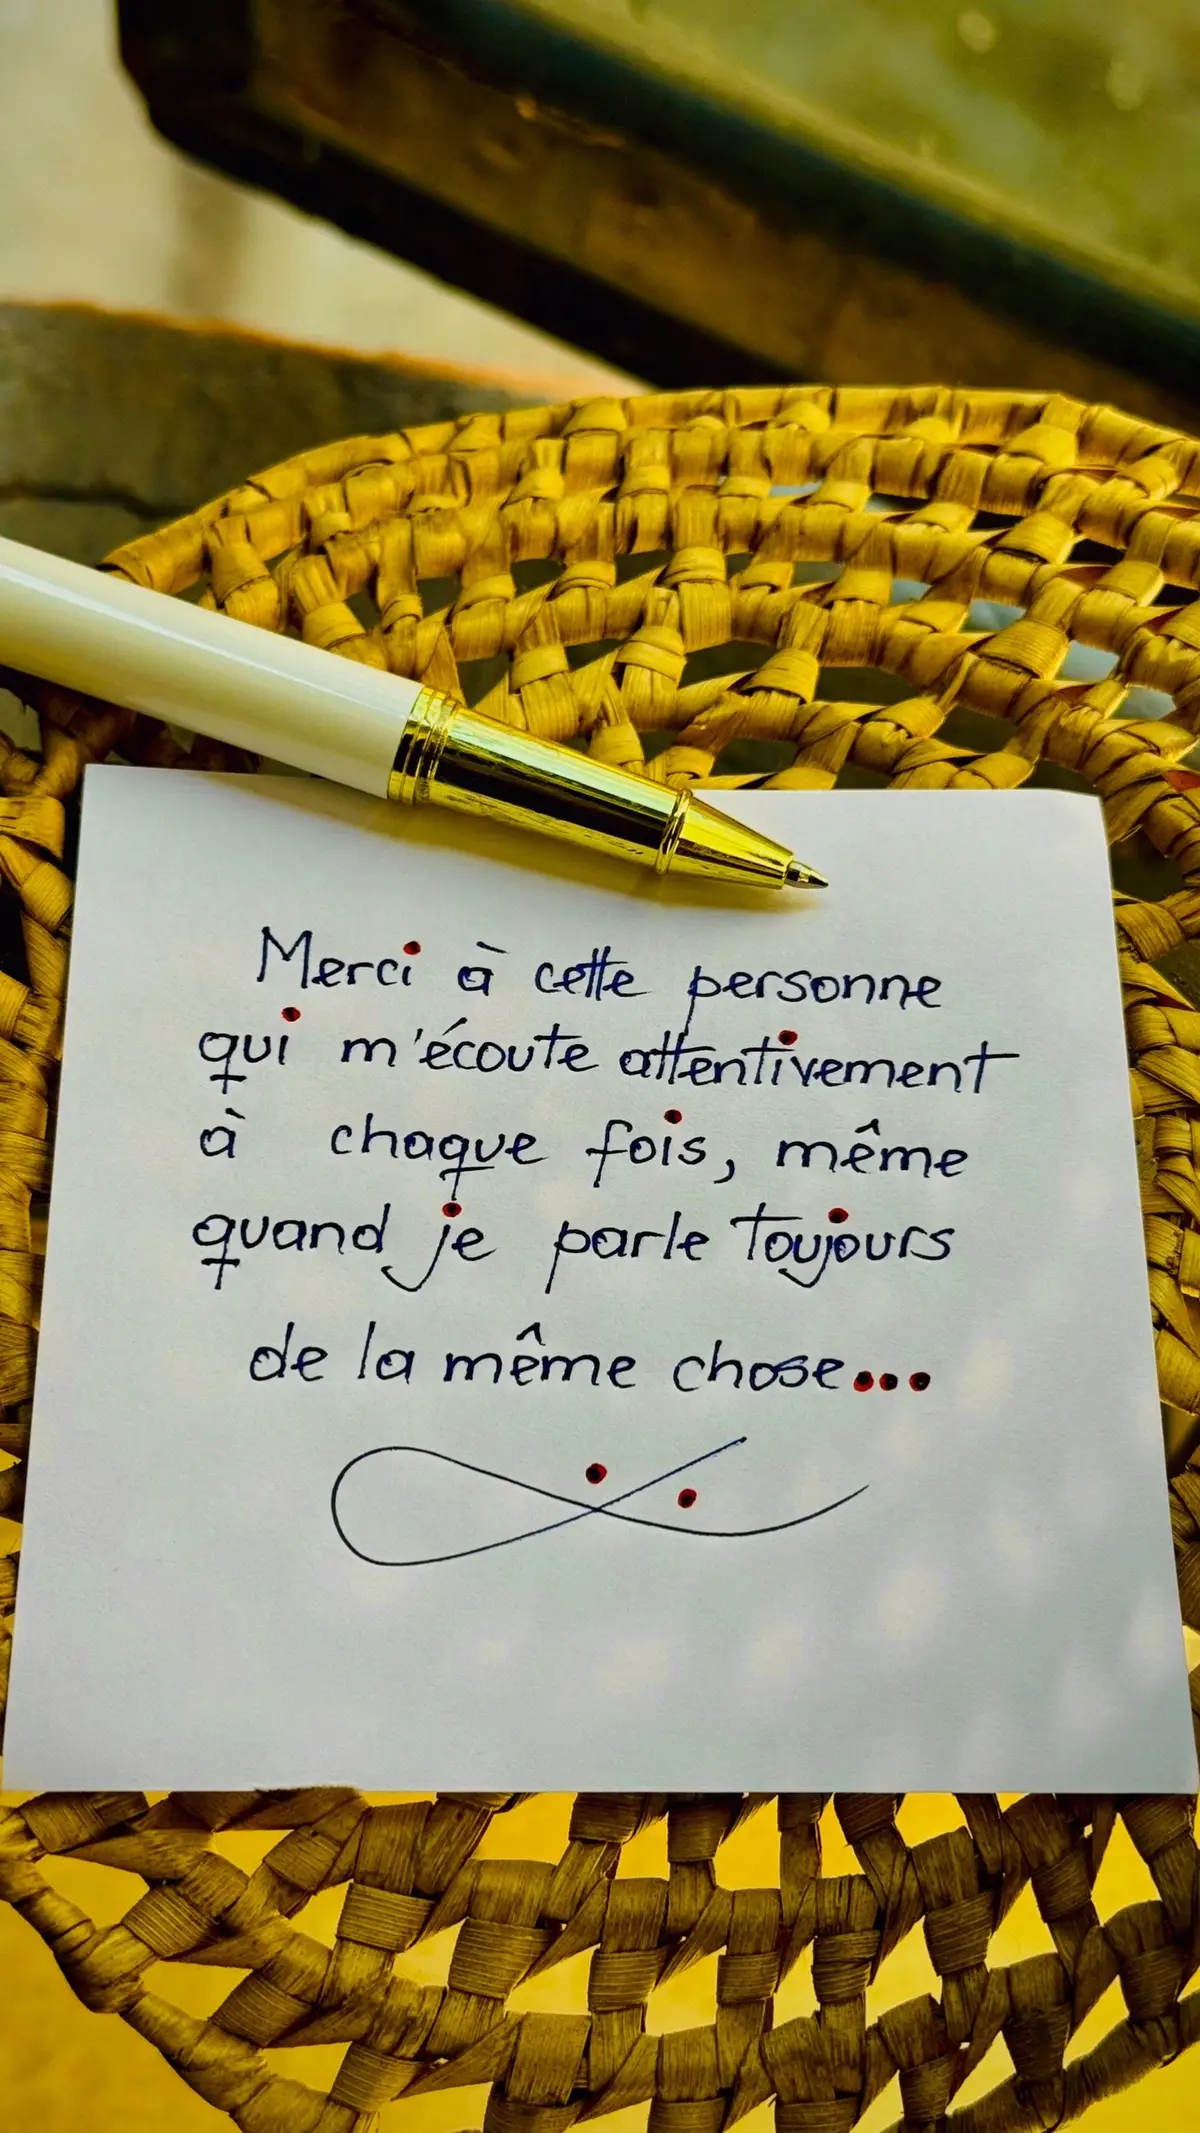 Merci à cette personne
qui m'écoute attentivement
à chaque fois, même
quand je parle toujours
de la même chose...